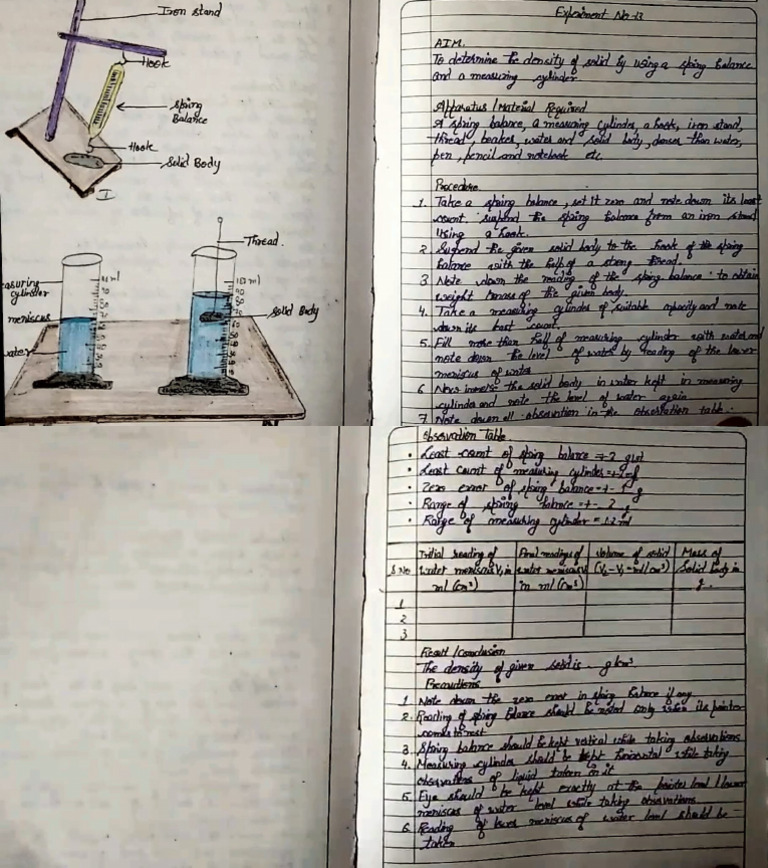 Iron stand
Hook
Spring
Balance
Hook
Solid Body
I
Thread.
Solid Body
asuring
cylinder
meniscus
water
Experiment No-13
AIM.
To determine the density of solid by using a spring balance
and a measuring cylinder.
Apparatus / Material Required
A spring balance, a measuring cylinder, a hook, iron stand,
thread, beaker, water and solid body, denser than water,
pen, pencil and notebook etc.
Procedure.
1. Take a spring balance, set it zero and note down its least
count. suspend the spring balance from an iron stand
Using a hook.
2. Suspend the given solid body to the hook of the spring
balance with the help of a strong thread.
3. Note down the reading of the spring balance to obtain
weight / mass of the given body.
4. Take a measuring cylinder of suitable capacity and note
down its least count.
5. Fill more than half of measuring cylinder with water and
note down the level of water by reading of the lower
meniscus of water
6. Now immerse the solid body in water kept in measuring
cylinder and note the level of water again
7. Note down all observation in the observation table.
Observation Table.
• Least count of spring balance =
• Least count of measuring cylinder =
• Zero error of spring balance =
• Range of spring balance =
• Range of measuring cylinder =
S.No Initial reading of water meniscus V₁ in ml (cm³)
Final readings of water meniscus in ml (cm³)
Volume of solid (V₂ - V₁ = ml/cm³)
Mass of Solid body in g.
1
2
3
Result / Conclusion
The density of given solid is
Precautions.
1. Note down the zero error in spring balance if any
2. Reading of spring balance should be noted only when its pointer
comes to rest
3. Spring balance should be kept vertical while taking observations
4. Measuring cylinder should be kept horizontal while taking
observations of liquid taken in it
5. Eye should be kept exactly at the level / lower
meniscus of water level while taking observations
6. Reading of lower meniscus of water level should be
taken